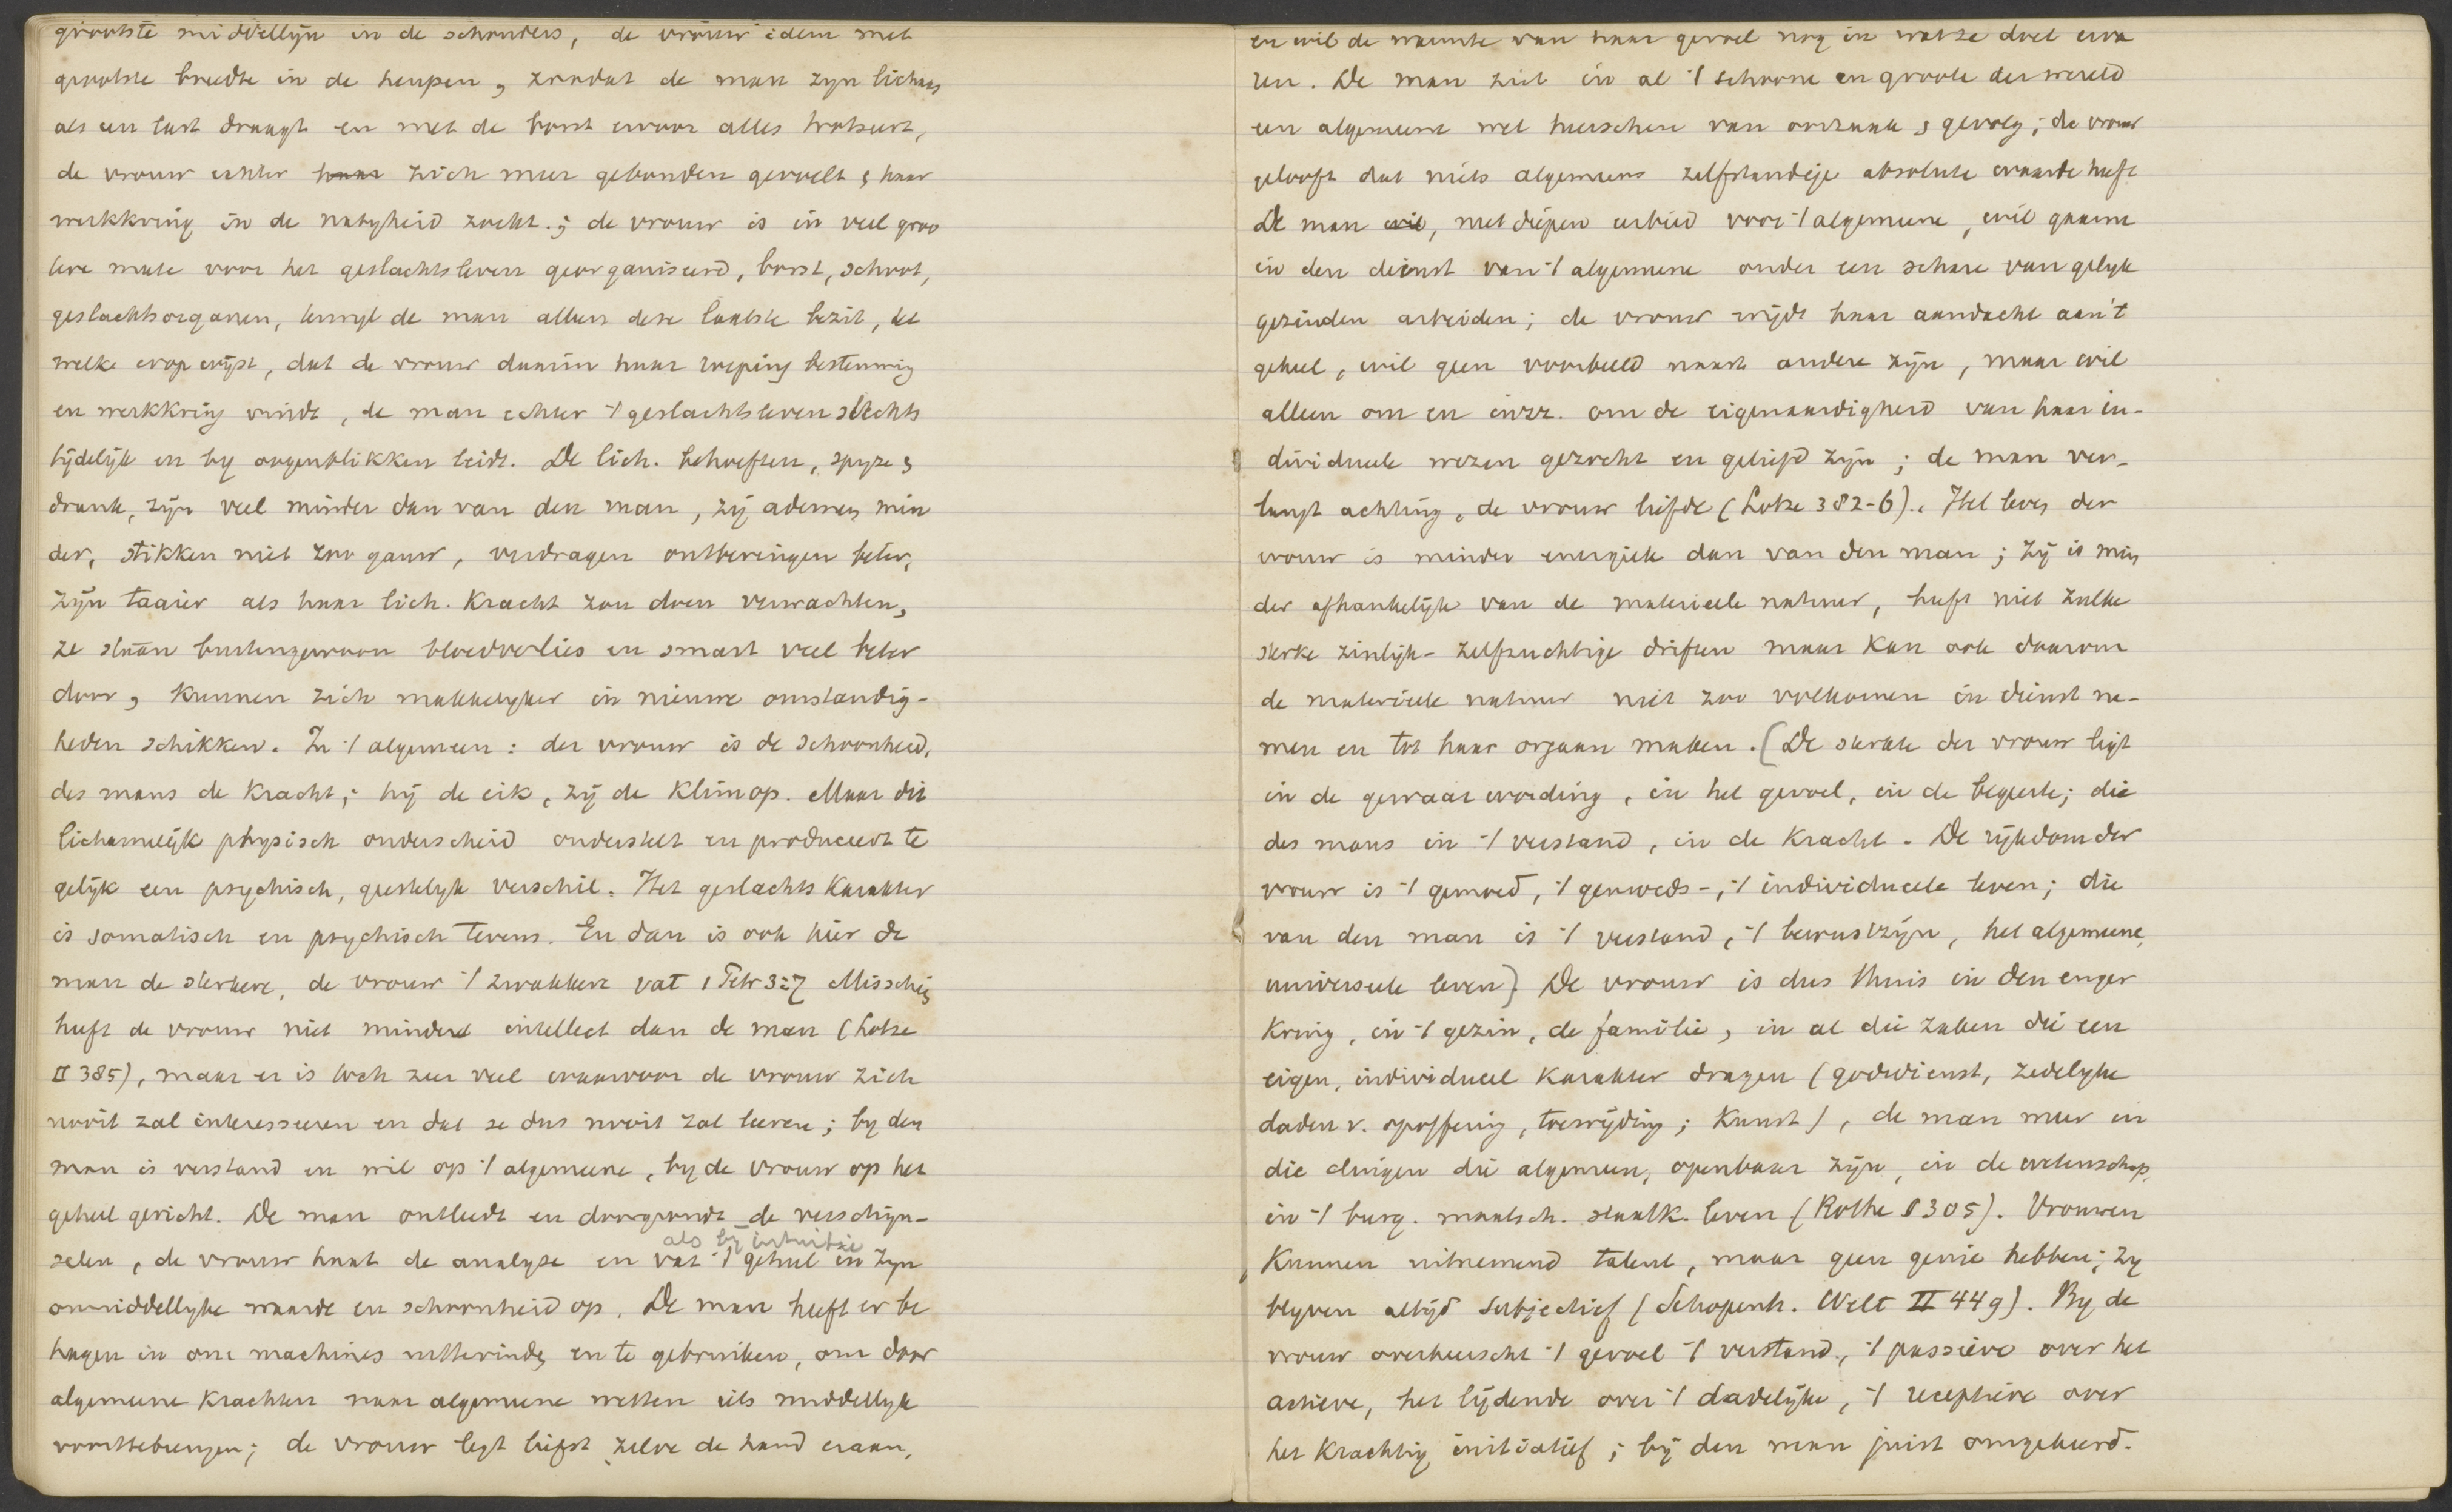 grootste middellijn in de schouders, de vrouw idem met
grootste breedte in de heupen, zoodat de man zyn lichaam
als een last draagt en met de borst ervoor alles trotseert,
de vrouw echter haar zich meer gebonden gevoelt & haar
werkkring in de nabyheid zoekt.; de vrouw is in veel groo
tere mate voor het geslachtsleven georganiseerd, borst, schoot,
geslachtsorganen, terwyl de man alleen deze laatste bezit, het
welke erop wijst, dat de vrouw daarin haar roeping bestemming
en werkkring vindt, de man echter 't geslachtsleven slechts
tijdelijk en by oogenblikken leidt. De lich. behoeften, spyze &
drank, zijn veel minder dan van den man, zij ademen min
der, stikken niet zoo gauw, verdragen ontberingen beter,
zijn taaier als haar lich. kracht zou doen verwachten,
ze staan buitengewoon bloedverlies en smart veel beter
door, kunnen zich makkelyker in nieuwe omstandig-
heden schikken. In 't algemeen: der vrouw is de schoonheid,
des mans de kracht; hij de eik, zij de klimop. Maar dit
lichamelijk physisch onderscheid onderstelt en produceert te
gelijk een psychisch, geestelyk verschil. Het geslachts karakter
is somatisch en psychisch tevens. En dan is ook hier de
man de sterkere, de vrouw 't zwakkere vat 1 Petr 3:7 Misschien
heeft de vrouw niet minder intellect dan de man (Lotze
II 385), maar er is toch zeer veel waarvoor de vrouw zich
nooit zal interesseeren en dat ze dus nooit zal leeren; by den
man is verstand en wil op 't algemeene, by de vrouw op het
geheel gericht. De man ontleedt en doorgrondt de verschijn-
als by intuitie
selen, de vrouw haat de analyse en vat 't geheel in zyn
onmiddellyke waarde en schoonheid op. De man heeft er be
hagen in om machines uittevinden en te gebruiken, om door
algemeene krachten naar algemeene wetten iets middellyk
voorttebrengen; de vrouw legt liefst zelve de hand eraan,
en wil de warmte van haar gevoel nog in wat ze doet erva
ren. De man ziet in al 't schoone en groote der wereld
een algemeene wet heerschen van oorzaak & gevolg; de vrouw
gelooft dat niets algemeens zelfstandige absolute waarde heeft
De man wil, met diepen eerbied voor 't algemeene, wil gaarne
in den dienst van 't algemeene onder een schare van gelyk
gezinden arbeiden; de vrouw wijdt haar aandacht aan 't
geheel, wil geen voorbeeld naast andere zijn, maar wil
alleen om en inzz. om de eigenaardigheid van haar in-
dividueele wezen gezocht en geliefd zijn; de man ver-
langt achting, de vrouw liefde (Lotze 382-6). Het leven der
vrouw is minder energiek dan van den man; zij is min
der afhankelijk van de materieele natuur, heeft niet zulke
sterke zinlijk-zelfzuchtige driften maar kan ook daarom
de materieele natuur niet zoo volkomen in dienst ne-
men en tot haar orgaan maken. (De sterkte der vrouw ligt
in de gewaarwording, in het gevoel, in de begeerte; die
des mans in 't verstand, in de kracht. De rijkdom der
vrouw is 't gemoed, 't gemoeds-, 't individueele leven; die
van den man is 't verstand, 't bewustzijn, het algemeene,
universeele leven) De vrouw is dus thuis in den enger
kring, in 't gezin, de familie, in al die zaken die een
eigen, individueel karakter dragen (godsdienst, zedelyke
daden v. opoffering, toewijding; kunst), de man meer in
die dingen die algemeen, openbaar zijn, in de wetenschap,
in 't burg. maatsch. staatk. leven (Rothe § 305). Vrouwen
kunnen uitnemend talent, maar geen genie hebben; zy
blyven altijd subjectief (Schopenh. Welt II 449). By de
vrouw overheerscht 't gevoel 't verstand, 't passieve over het
actieve, het lijdende over 't dadelijke, 't receptieve over
het krachtig initiatief; bij den man juist omgekeerd.